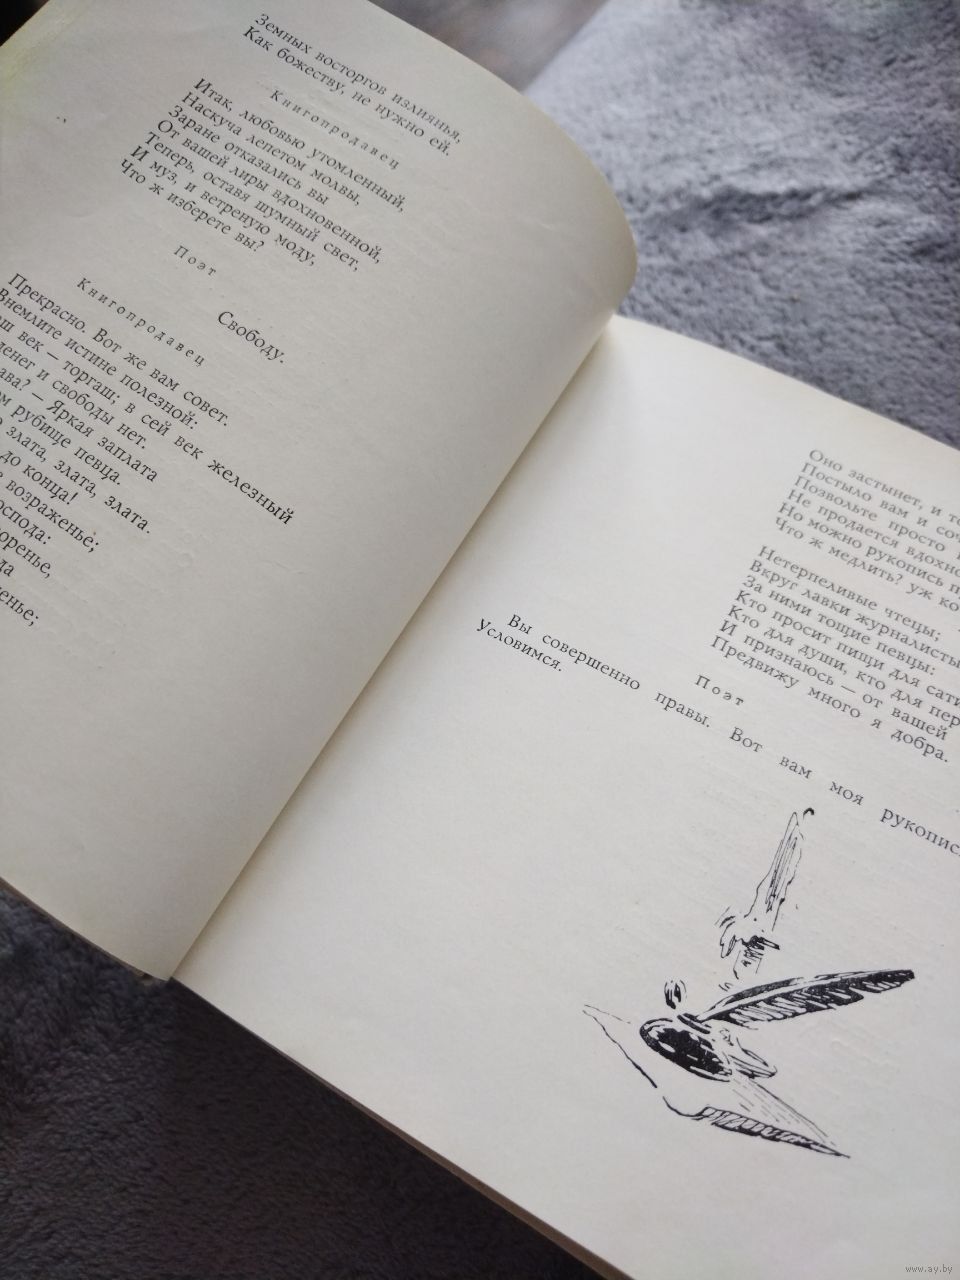 Земных восторгов излиянья,
Как божеству, не нужно ей.
Книгопродавец
Итак, любовью утомленный,
Наскуча лепетом молвы,
Заране отказались вы
От вашей лиры вдохновенной,
Теперь, оставя шумный свет,
И муз, и ветреную моду,
Что ж изберете вы?
Поэт
Свободу.
Книгопродавец
Прекрасно. Вот же вам совет.
Внемлите истине полезной:
век — торгаш; в сей век железный
денег и свободы нет.
— Яркая заплата
рубище певца.
злата, злата, злата.
до конца!
возраженье;
Оно застынет, и
Постыло вам и
Позвольте просто
Не продается
Но можно рукопись
Что ж медлить? уж
Нетерпеливые чтецы;
Вкруг лавки журналисты
За ними тощие певцы:
Кто просит пищи для
Кто для души, кто для
И признаюсь — от вашей
Предвижу много я добра.
Поэт
Вы совершенно правы. Вот вам моя
Условимся.
www.ay.by